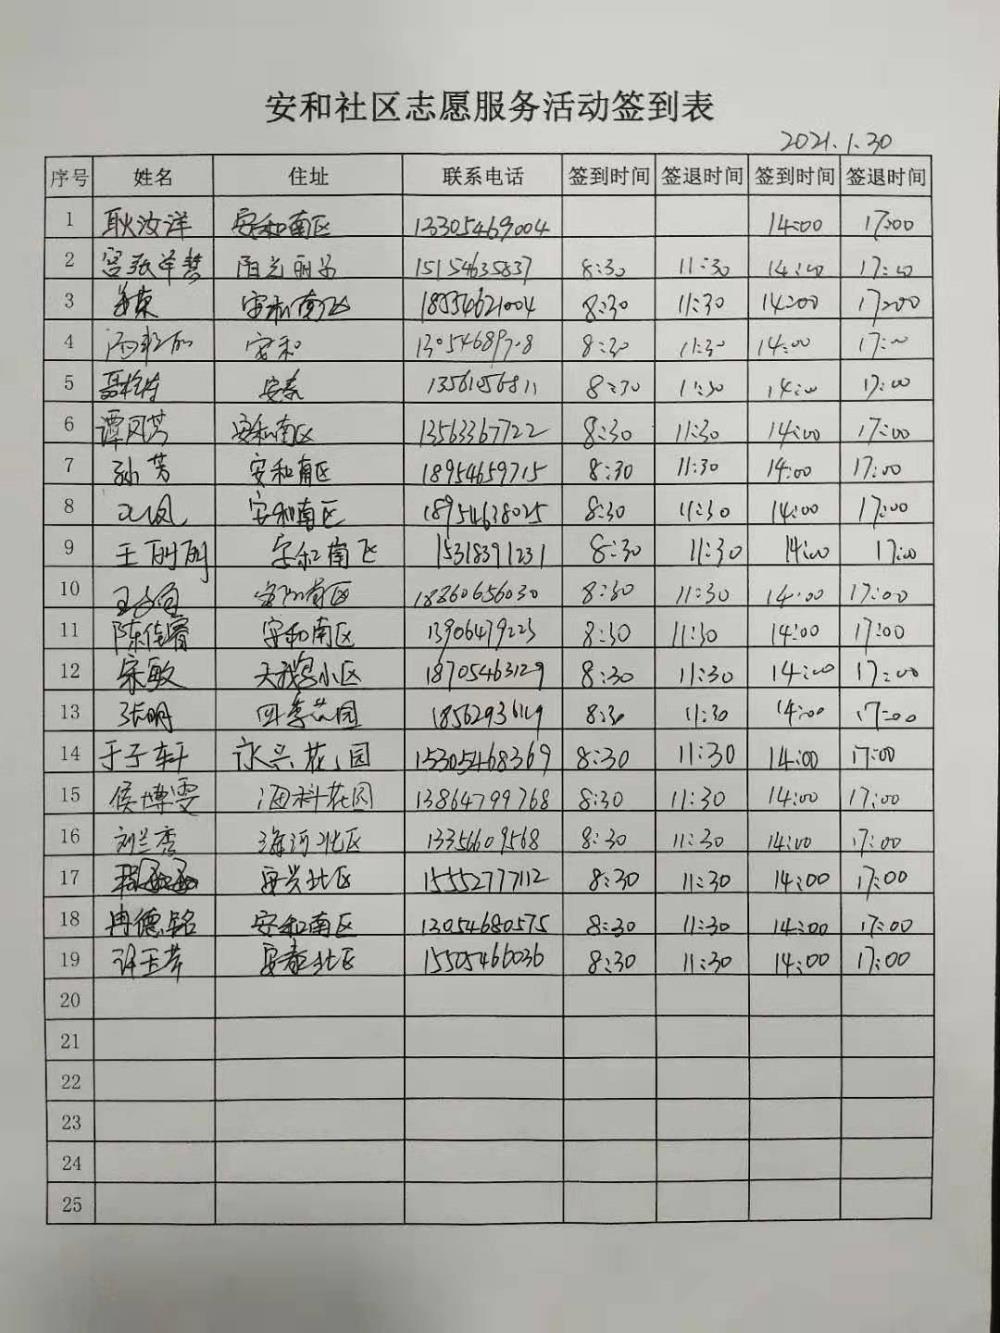 安和社区志愿服务活动签到表
2021.1.30
序号 姓名 住址 联系电话 签到时间 签退时间 签到时间 签退时间
1 耿汝洋 安和南区 13305469004 14:00 17:00
2 阳光丽景 15154635837 8:30 11:30 14:00 17:00
3 安和南区 18554621004 8:30 11:30 14:00 17:00
4 安和 8:30 11:30 14:00 17:00
5 安泰 8:30 11:30 14:00 17:00
6 谭风芳 安和南区 13563367722 8:30 11:30 14:00 17:00
7 孙芳 安和南区 18954659715 8:30 11:30 14:00 17:00
8 安和南区 18954638025 8:30 11:30 14:00 17:00
9 王丽丽 安和南区 15318391231 8:30 11:30 14:00 17:00
10 安和南区 18860656030 8:30 11:30 14:00 17:00
11 陈佳睿 安和南区 13906479223 8:30 11:30 14:00 17:00
12 宋敏 小区 18705463129 8:30 11:30 14:00 17:00
13 张明 四季花园 8:30 11:30 14:00 17:00
14 于子轩 永兴花园 15305468369 8:30 11:30 14:00 17:00
15 侯博雯 海科花园 13864799768 8:30 11:30 14:00 17:00
16 刘兰秀 海河北区 13356609568 8:30 11:30 14:00 17:00
17 安兴北区 15552777112 8:30 11:30 14:00 17:00
18 冉德铭 安和南区 13054680575 8:30 11:30 14:00 17:00
19 许玉芹 安泰北区 15505466036 8:30 11:30 14:00 17:00
20
21
22
23
24
25